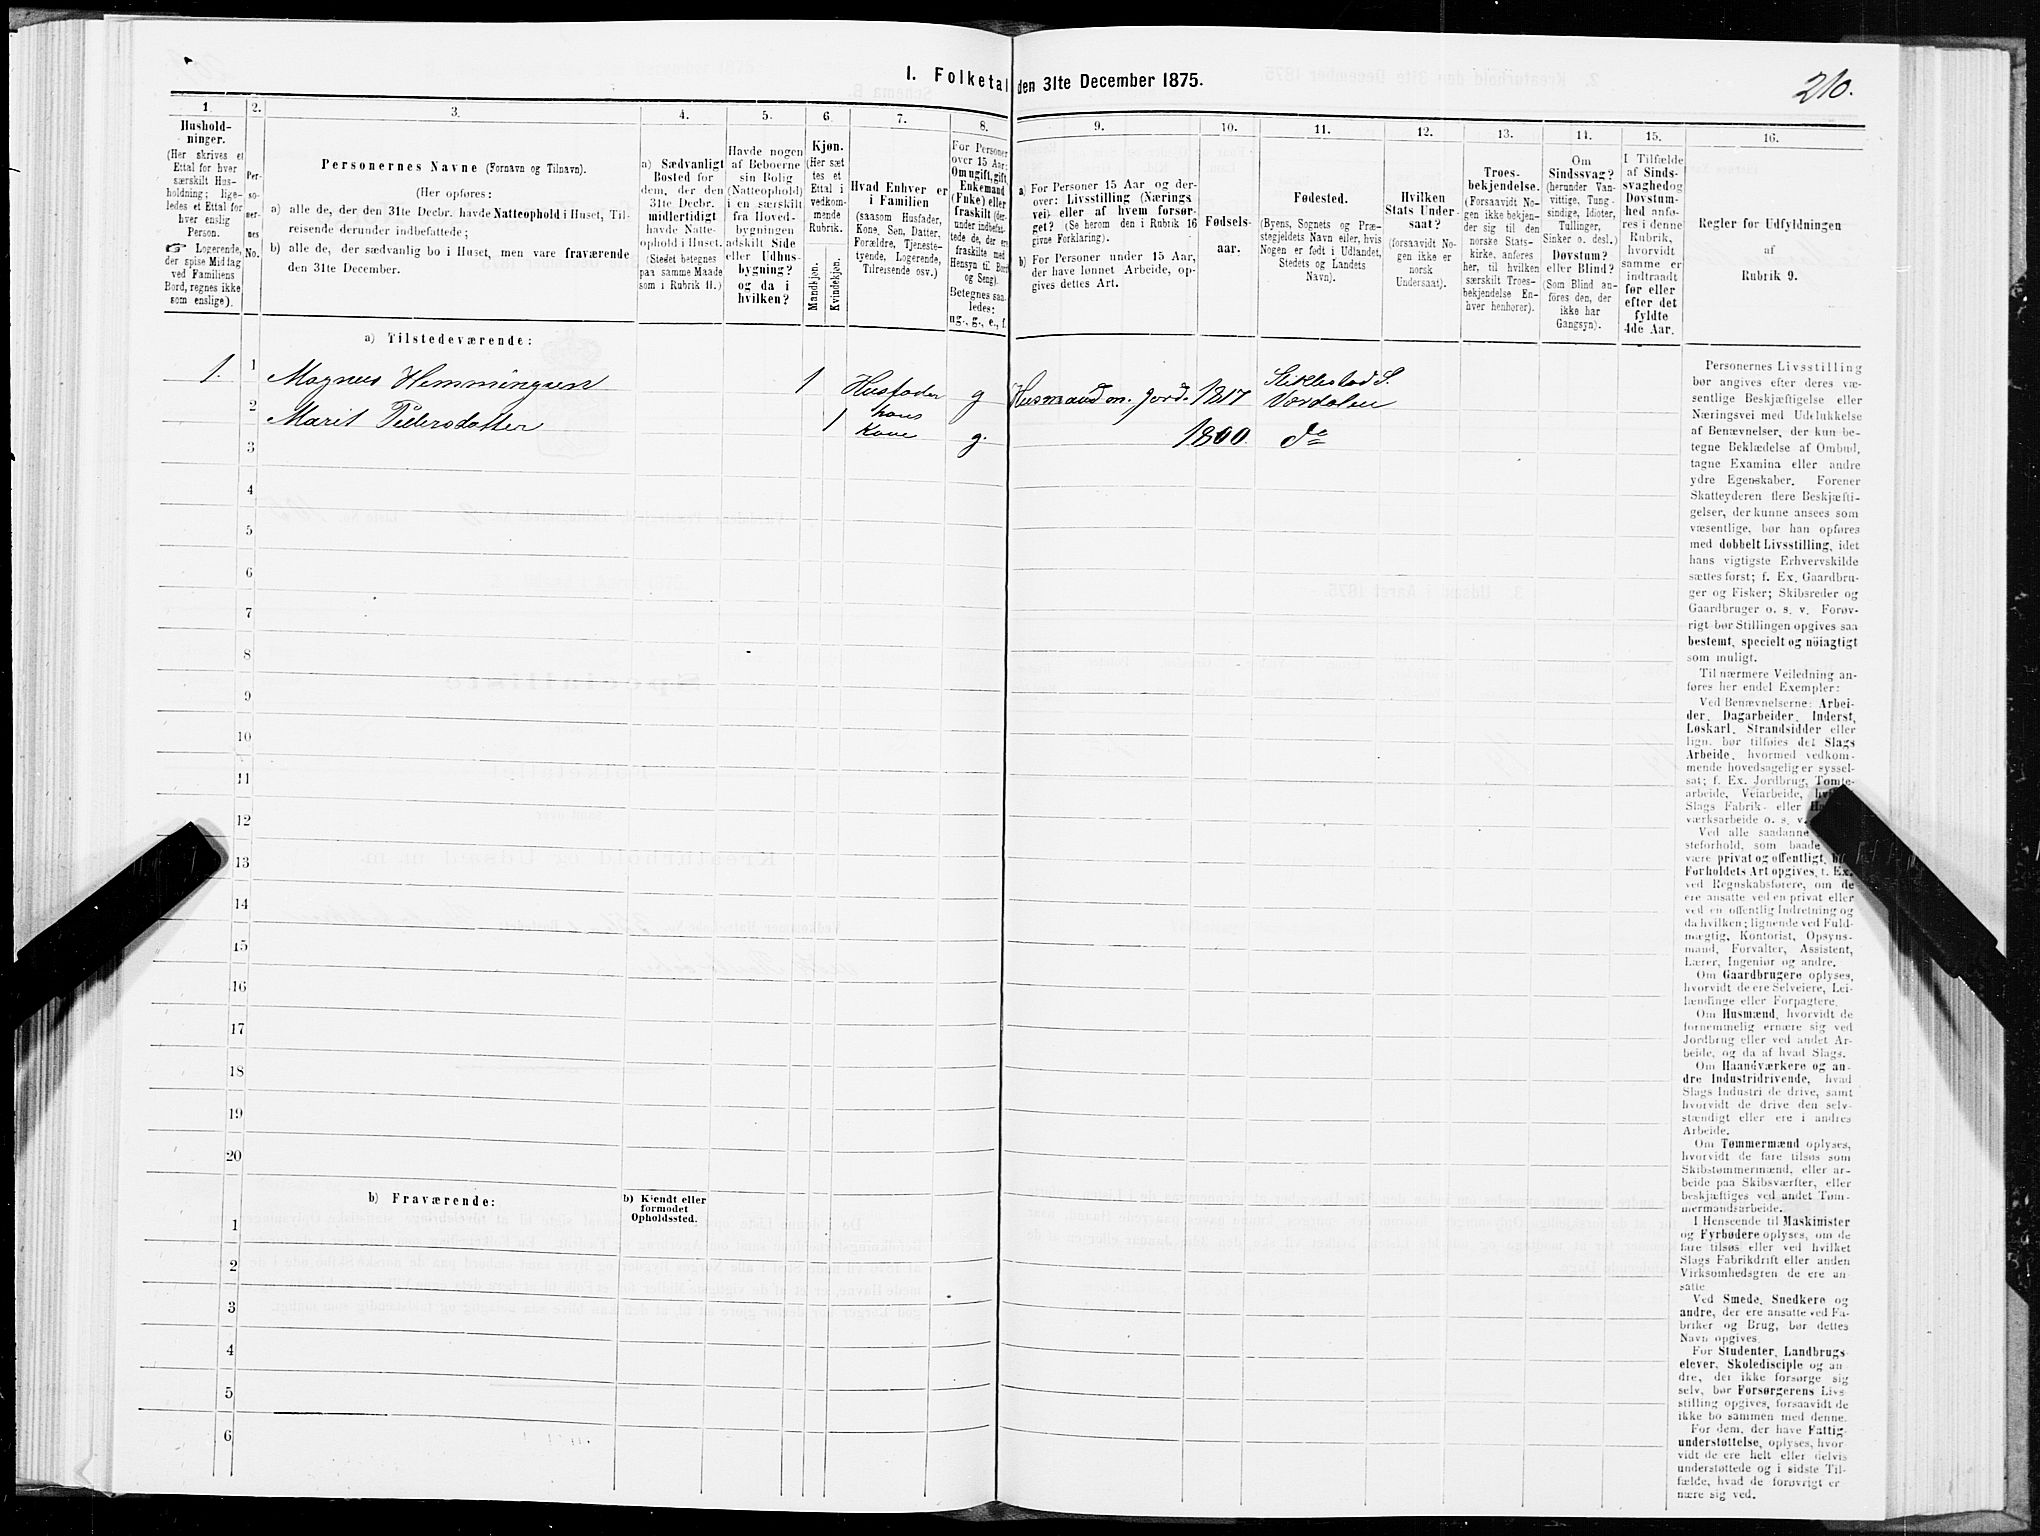 I. Folketal den 31te December 1875.
210.
1.
Hushold-
ninger.
(Her skrives et
Ettal for hver
særskilt Hus-
holdning; lige-
ledes et Ettal for
hver enslig
Person.
☞ Logerende,
der spise Middag
ved Familiens
Bord, regnes ikke
som enslige).
2.
Per-
so-
ner-
nes
No.
3.
Personernes Navne (Fornavn og Tilnavn).
(Her opføres:
a) alle de, der den 31te Decbr. havde Natteophold i Huset, Til-
reisende derunder indbefattede;
b) alle de, der sædvanlig bo i Huset, men vare fraværende
den 31te December.
4.
a) Sædvanligt
Bosted for
dem, der den
31te Decbr.
midlertidigt
havde Natte-
ophold i Huset.
(Stedet betegnes
paa samme Maade
som i Rubrik 11.)
5.
Havde nogen
af Beboerne
sin Bolig
(Natteophold)
i en særskilt
fra Hoved-
bygningen
adskilt Side
eller Udhus-
bygning?
og da i
hvilken?
6.
Kjøn.
(Her sæt
tes et
Ettal i
vedkom-
mende
Rubrik.
Mandkjøn.
Kvindekjøn.
7.
Hvad Enhver er
i Familien
(saasom Husfader,
Kone, Søn, Datter,
Forældre, Tjeneste-
tyende, Logerende,
Tilreisende osv.)
8.
For Personer
over 15 Aar:
Om ugift, gift,
Enkemand
(Enke) eller
fraskilt (der-
under indbefat-
tede de, der ere
fraskilte med
Hensyn til Bord
og Seng).
Betegnes saa-
ledes:
ug., g., e., f.
9.
a) For Personer 15 Aar og der-
over: Livsstilling (Nærings
vei eller af hvem forsør-
get? (Se herom den i Rubrik 16
givne Forklaring).
b) For Personer under 15 Aar,
der have lønnet Arbeide, op-
gives dettes Art.
10.
Fødsels-
aar.
11.
Fødested.
(Byens, Sognets og Præ-
stegjeldets Navn eller, hvis
Nogen er født i Udlandet,
Stedets og Landets
Navn).
12.
Hvilken
Stats Under-
saat?
(forsaavidt No-
gen ikke er
norsk
Undersaat).
13.
Troes-
bekjendelse.
(Forsaavidt No-
gen ikke bekjen-
der sig til den
norske Stats-
kirke, anføres
her, til hvilken
særskilt Troes-
bekjendelse En-
hver henhører).
14.
Om
Sindssvag?
(herunder Van-
vittige, Tung-
sindige, Idioter,
Tullinger,
Sinker o. desl.)
Døvstum?
eller Blind?
(Som Blind an-
føres den, der
ikke har
Gangsyn).
15.
I Tilfælde
af Sinds-
svaghed og
Døvstum-
hed anfø-
res i denne
Rubrik,
hvorvidt
samme er
indtraadt
før eller
efter det
fyldte
4de Aar.
16.
Regler for Udfyldningen
af
Rubrik 9.
a) Tilstedeværende:
1. 1 Magnus Hemmingsen 1 Husfader g Husmand m. Jord. 1817 Stiklestad S. Værdalen
2 Marit Pedersdatter 1 hans Kone g. 1800 do
3
4
5
6
7
8
9
10
11
12
13
14
15
16
17
18
19
20
b) Fraværende:
b) Kjendt eller
formodet
Opholdssted.
1
2
3
4
5
6
Personernes Livsstilling
bør angives efter deres væ-
sentlige Beskjæftigelse eller
Næringsvei med Udelukkelse
af Benævnelser, der kun be-
tegne Beklædelse af Ombud,
tagne Examina eller andre
ydre Egenskaber. Forener
Skatteyderen flere Beskjæfti-
gelser, der kunne ansees som
væsentlige, bør han opføres
med dobbelt Livsstilling, idet
hans vigtigste Erhvervskilde
sættes først; f. Ex. Gaardbru-
ger og Fisker; Skibsreder og
Gaardbruger o. s. v. Forøv-
rigt bør Stillingen opgives saa
bestemt, specielt og nöiagtigt
som muligt.
Til nærmere Veiledning an-
føres her endel Exempler:
Ved Benævnelserne: Arbei-
der, Dagarbeider, Inderst,
Løskarl, Strandsidder eller
lign. bør tilføies det Slags
Arbeide, hvormed vedkom-
mende hovedsagelig er syssel-
sat; f. Ex. Jordbrug, Tomte-
arbeide, Veiarbeide,
Slags Fabrik- eller
værksarbeide o. s. v.
Ved alle saadanne
steforhold, som baade
være privat og offentligt,
Forholdets Art opgives, f. Ex.
ved Regnskabsførere, om de
ere ansatte ved en privat eller
ved en offentlig Indretning og
da hvilken; lignende ved Fuld-
mægtig, Kontorist, Opsyns-
mand, Forvalter, Assistent,
Lærer, Ingeniør og andre.
Om Gaardbrugere oplyses,
hvorvidt de ere Selveiere, Lei-
lændinge eller Forpagtere.
Om Husmænd, hvorvidt de
fornemmelig ernære sig ved
Jordbrug eller ved andet Ar-
beide, og da af hvad Slags.
Om Haandværkere og an-
dre Industridrivende, hvad
Slags Industri de drive, samt
hvorvidt de drive den selv-
stændigt eller ere i andres
Arbeide.
Om Tømmermænd oplyses,
hvorvidt de fare tilsøs som
Skibstømmermænd, eller ar-
beide paa Skibsværfter, eller
beskjæftiges ved andet Tøm-
mermandsarbeide.
I Henseende til Maskinister
og Fyrbødere oplyses, om de
fare tilsøs eller ved hvilket
Slags Fabrikdrift eller anden
Virksomhedsgren de ere an-
satte.
Ved Smede, Snedkere og
andre, der ere ansatte ved Fa-
briker og Brug, bør dettes
Navn opgives.
For Studenter, Landbrugs-
elever, Skoledisciple og an-
dre, der ikke forsørge sig
selv, bør Forsørgerens Livs-
stilling opgives, forsaavidt de
ikke bo sammen med denne.
For dem, der have Fattig-
understøttelse, oplyses, hvor-
vidt de ere helt eller delvis
understøttede og i sidste Til-
fælde, hvad de forøvrigt er-
nære sig ved.